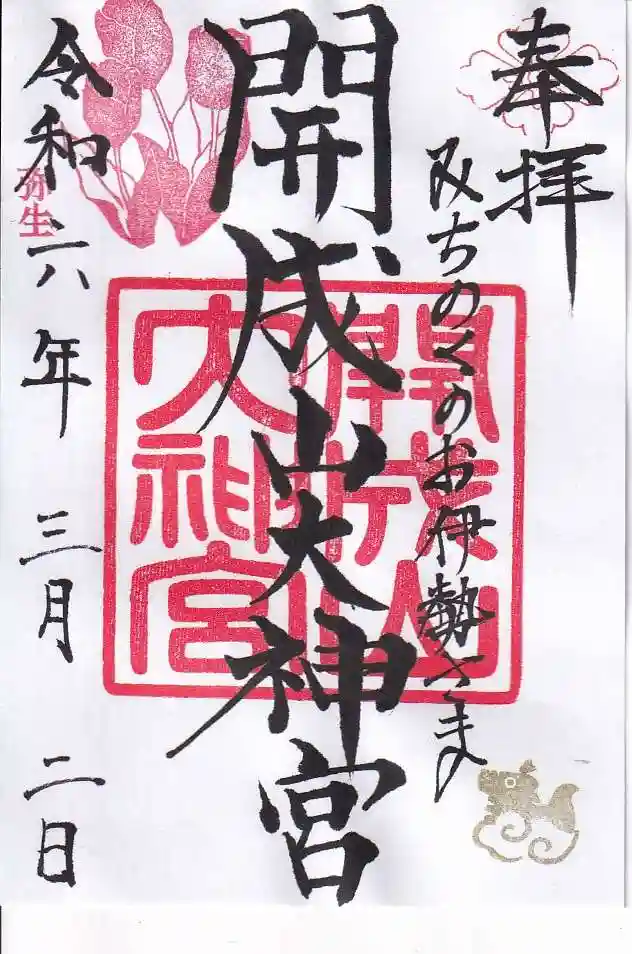 奉拝
みちのくのお伊勢さま
開成山大神宮
開成山
大神宮
令和六年三月二日
弥生